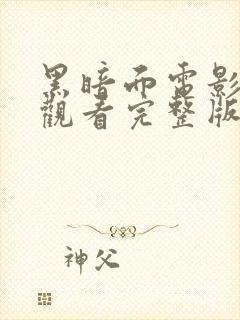 黑暗而電影
觀看完整版
神父